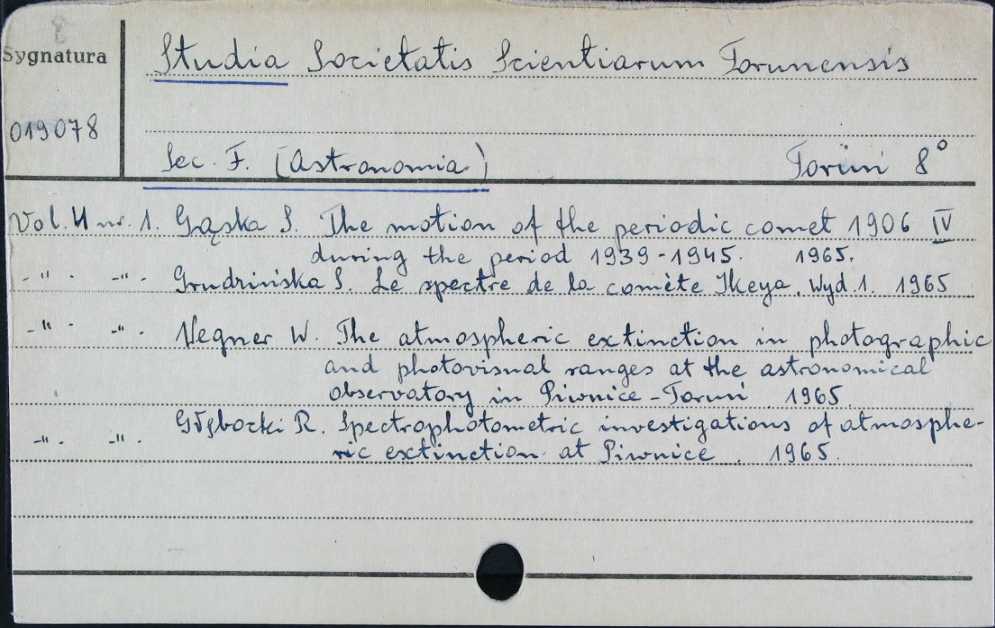 Sygnatura
Studia Societatis Scientiarum Torunensis
019078
Sec. F. (Astronomia) Toruń 8°
Vol. 4 nr. 1. Gąska S. The motion of the periodic comet 1906 IV
during the period 1939-1945. 1965.
-"- -"- Grudzińska S. Le spectre de la comète Ikeya. Wyd. 1. 1965
-"- -"- Wegner W. The atmospheric extinction in photographic
and photovisual ranges at the astronomical
observatory in Piwnice - Toruń 1965.
-"- -"- Głębocki R. Spectrophotometric investigations of atmosphe-
ric extinction at Piwnice. 1965.